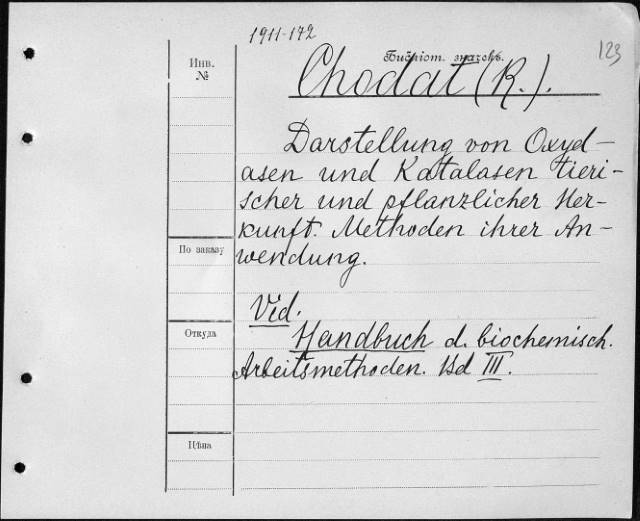 1911-172
123
Инв.
№
Chodat (R.).
Darstellung von Oxyd-
asen und Katalasen tieri-
scher und pflanzlicher Her-
kunft. Methoden ihrer An-
По заказу
wendung.
Vid.
Откуда
Handbuch d. biochemisch.
Arbeitsmethoden. Bd III.
Цѣна